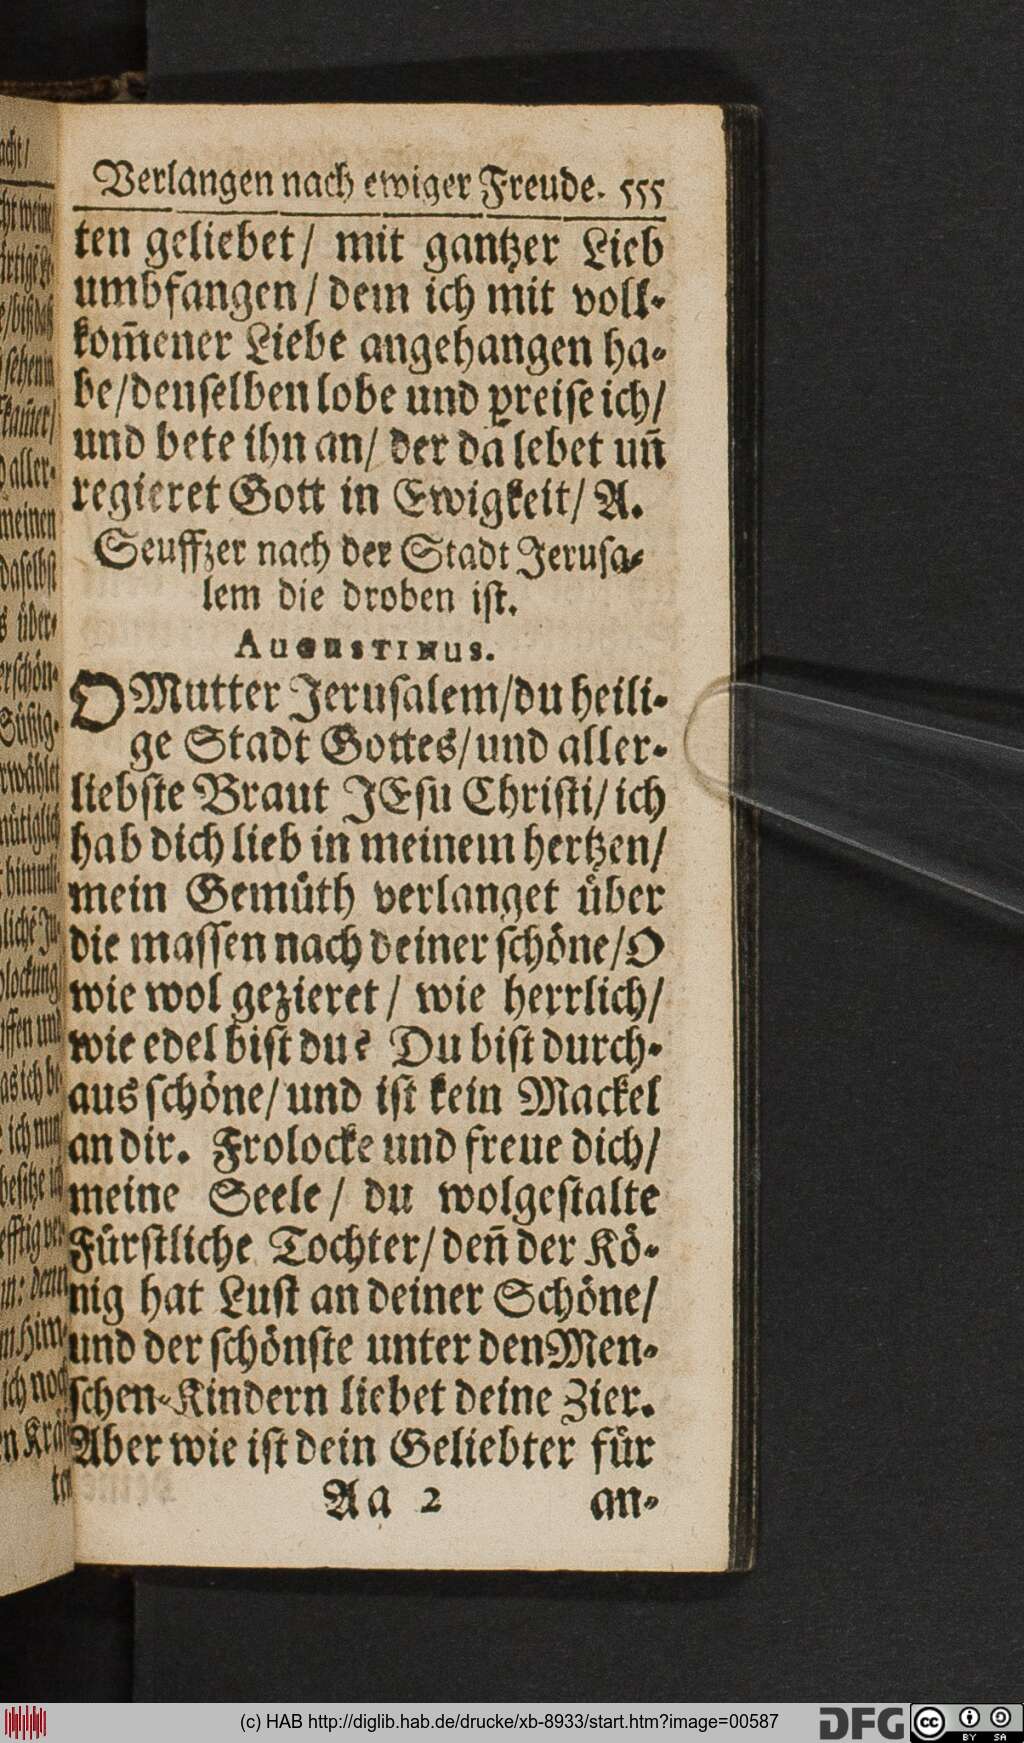 Verlangen nach ewiger Freude. 555
ten geliebet/ mit gantzer Lieb
umbfangen/ dem ich mit voll-
kom̃ener Liebe angehangen ha-
be/denselben lobe und preise ich/
und bete ihn an/ der da lebet uñ
regieret Gott in Ewigkeit/ A.
Seuffzer nach der Stadt Jerusa-
lem die droben ist.
AUGUSTINUS.
O Mutter Jerusalem/du heili-
ge Stadt Gottes/und aller-
liebste Braut JEsu Christi/ich
hab dich lieb in meinem hertzen/
mein Gemüth verlanget über
die massen nach deiner schöne/O
wie wol gezieret/ wie herrlich/
wie edel bist du? Du bist durch-
aus schöne/und ist kein Mackel
an dir. Frolocke und freue dich/
meine Seele/ du wolgestalte
Fürstliche Tochter/deñ der Kö-
nig hat Lust an deiner Schöne/
und der schönste unter den Men-
schen-Kindern liebet deine Zier.
Aber wie ist dein Geliebter für
Aa 2 an-
(c) HAB http://diglib.hab.de/drucke/xb-8933/start.htm?image=00587
DFG
cc BY SA